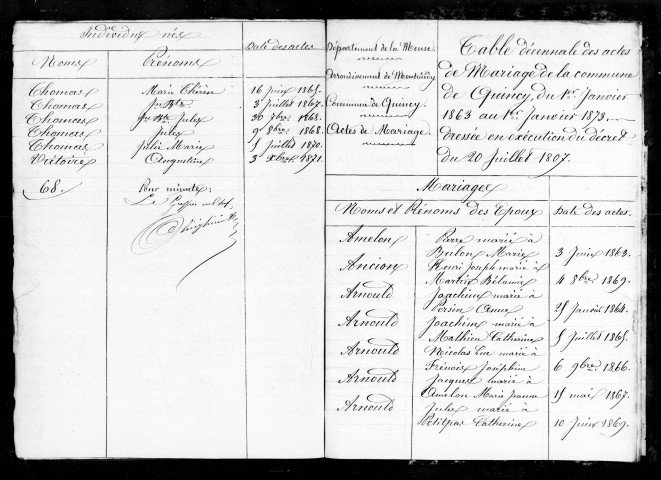 Individus nés
Noms Prénoms Date des actes
Thomas Marie Thérèse 16 Juin 1865.
Thomas Jn Bte 3 Juillet 1867.
Thomas Jn Bte Jules 30 1868.
Thomas Jules 9 8bre 1868.
Thomas Julie Marie 5 Juillet 1870.
Victoire Augustine 3 Xbre 1871.
68. Pour minute:
Le Greffier
Département de la Meuse.
Arrondissement de Montmédy
Commune de Quincy.
Actes de Mariage.
Table décennale des actes
de Mariage de la commune
de Quincy, du 1er Janvier
1863 au 1er Janvier 1873.
dressée en exécution du décret
du 20 Juillet 1807.
Mariages
Noms et Prénoms des Epoux Date des actes.
Amelon Pierre marié à
Bulon Marie 3 Juin 1863.
Ancion Henri Joseph marié à
Martin Mélanie 4 8bre 1869.
Arnould Joachim marié à
Persin 25 Janvier 1864.
Arnould Joachim marié à
Mathieu Catherine 5 Juillet 1865.
Arnould Nicolas Luc marié à
Frénois Joséphine 6 9bre 1866.
Arnould Jacques marié à
Amelon Marie Jeanne 15 mai 1867.
Arnould Jules marié à
Petitpas Catherine 10 Juin 1869.